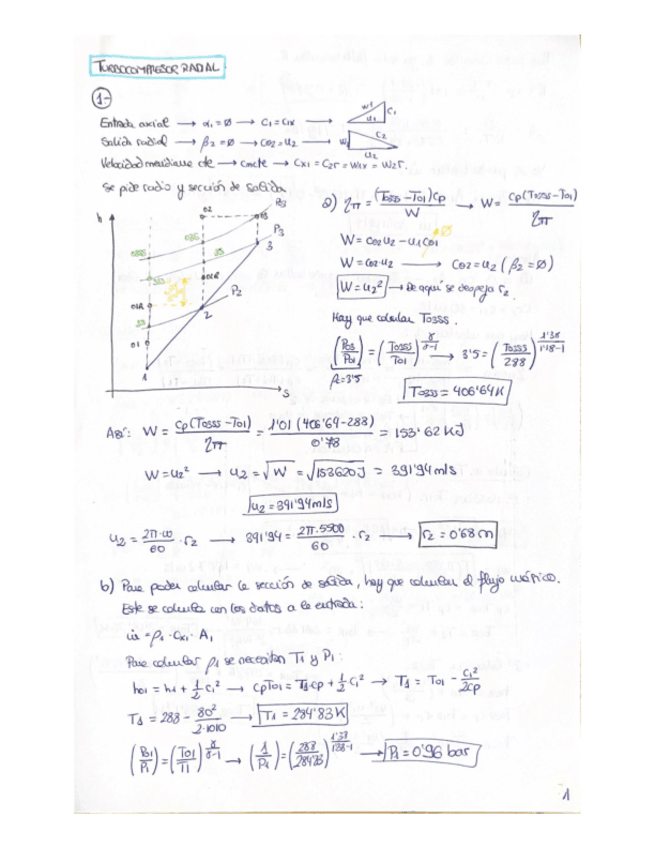 TURBOCOMPRESOR RADIAL
1-
Entrada axial → α1 = Ø → C1 = C1x →
w1 C1 u1
Salida radial → β2 = Ø → Cθ2 = u2 →
w2 C2 u2
Velocidad meridiana cte → Cm cte → Cx1 = C2r = W1x = W2r.
Se pide radio y sección de salida
h
02
03
P03
P3
3
02R
01R
P2
2
01
1
S
a) ηTT = (T03SS - T01)Cp / W → W = Cp(T03SS - T01) / ηTT
W = Cθ2 u2 - u1 Cθ1
Ø
W = Cθ2 · u2 → Cθ2 = u2 (β2 = Ø)
W = u2² → De aquí se despeja r2.
Hay que calcular T03SS.
(P03/P01) = (T03SS/T01)^(γ/γ-1) → 3'5 = (T03SS/288)^(1'38/1'38-1)
β = 3'5
T03SS = 406'64 K
Así: W = Cp(T03SS - T01) / ηTT = 1'01 (406'64 - 288) / 0'78 = 153'62 KJ
W = u2² → u2 = √W = √153620 J = 391'94 m/s
u2 = 391'94 m/s
u2 = 2π·ω/60 · r2 → 391'94 = 2π·5500/60 · r2 → r2 = 0'68 m
b) Para poder calcular la sección de salida, hay que calcular el flujo másico.
Este se calcula con los datos a la entrada:
ṁ = ρ1 · Cx1 · A1
Para calcular ρ1 se necesitan T1 y P1:
h01 = h1 + 1/2 C1² → CpT01 = T1·Cp + 1/2 C1² → T1 = T01 - C1²/2Cp
T1 = 288 - 80²/2·1010 → T1 = 284'83 K
(P01/P1) = (T01/T1)^(γ/γ-1) → (1/P1) = (288/284'83)^(1'38/1'38-1) → P1 = 0'96 bar
1